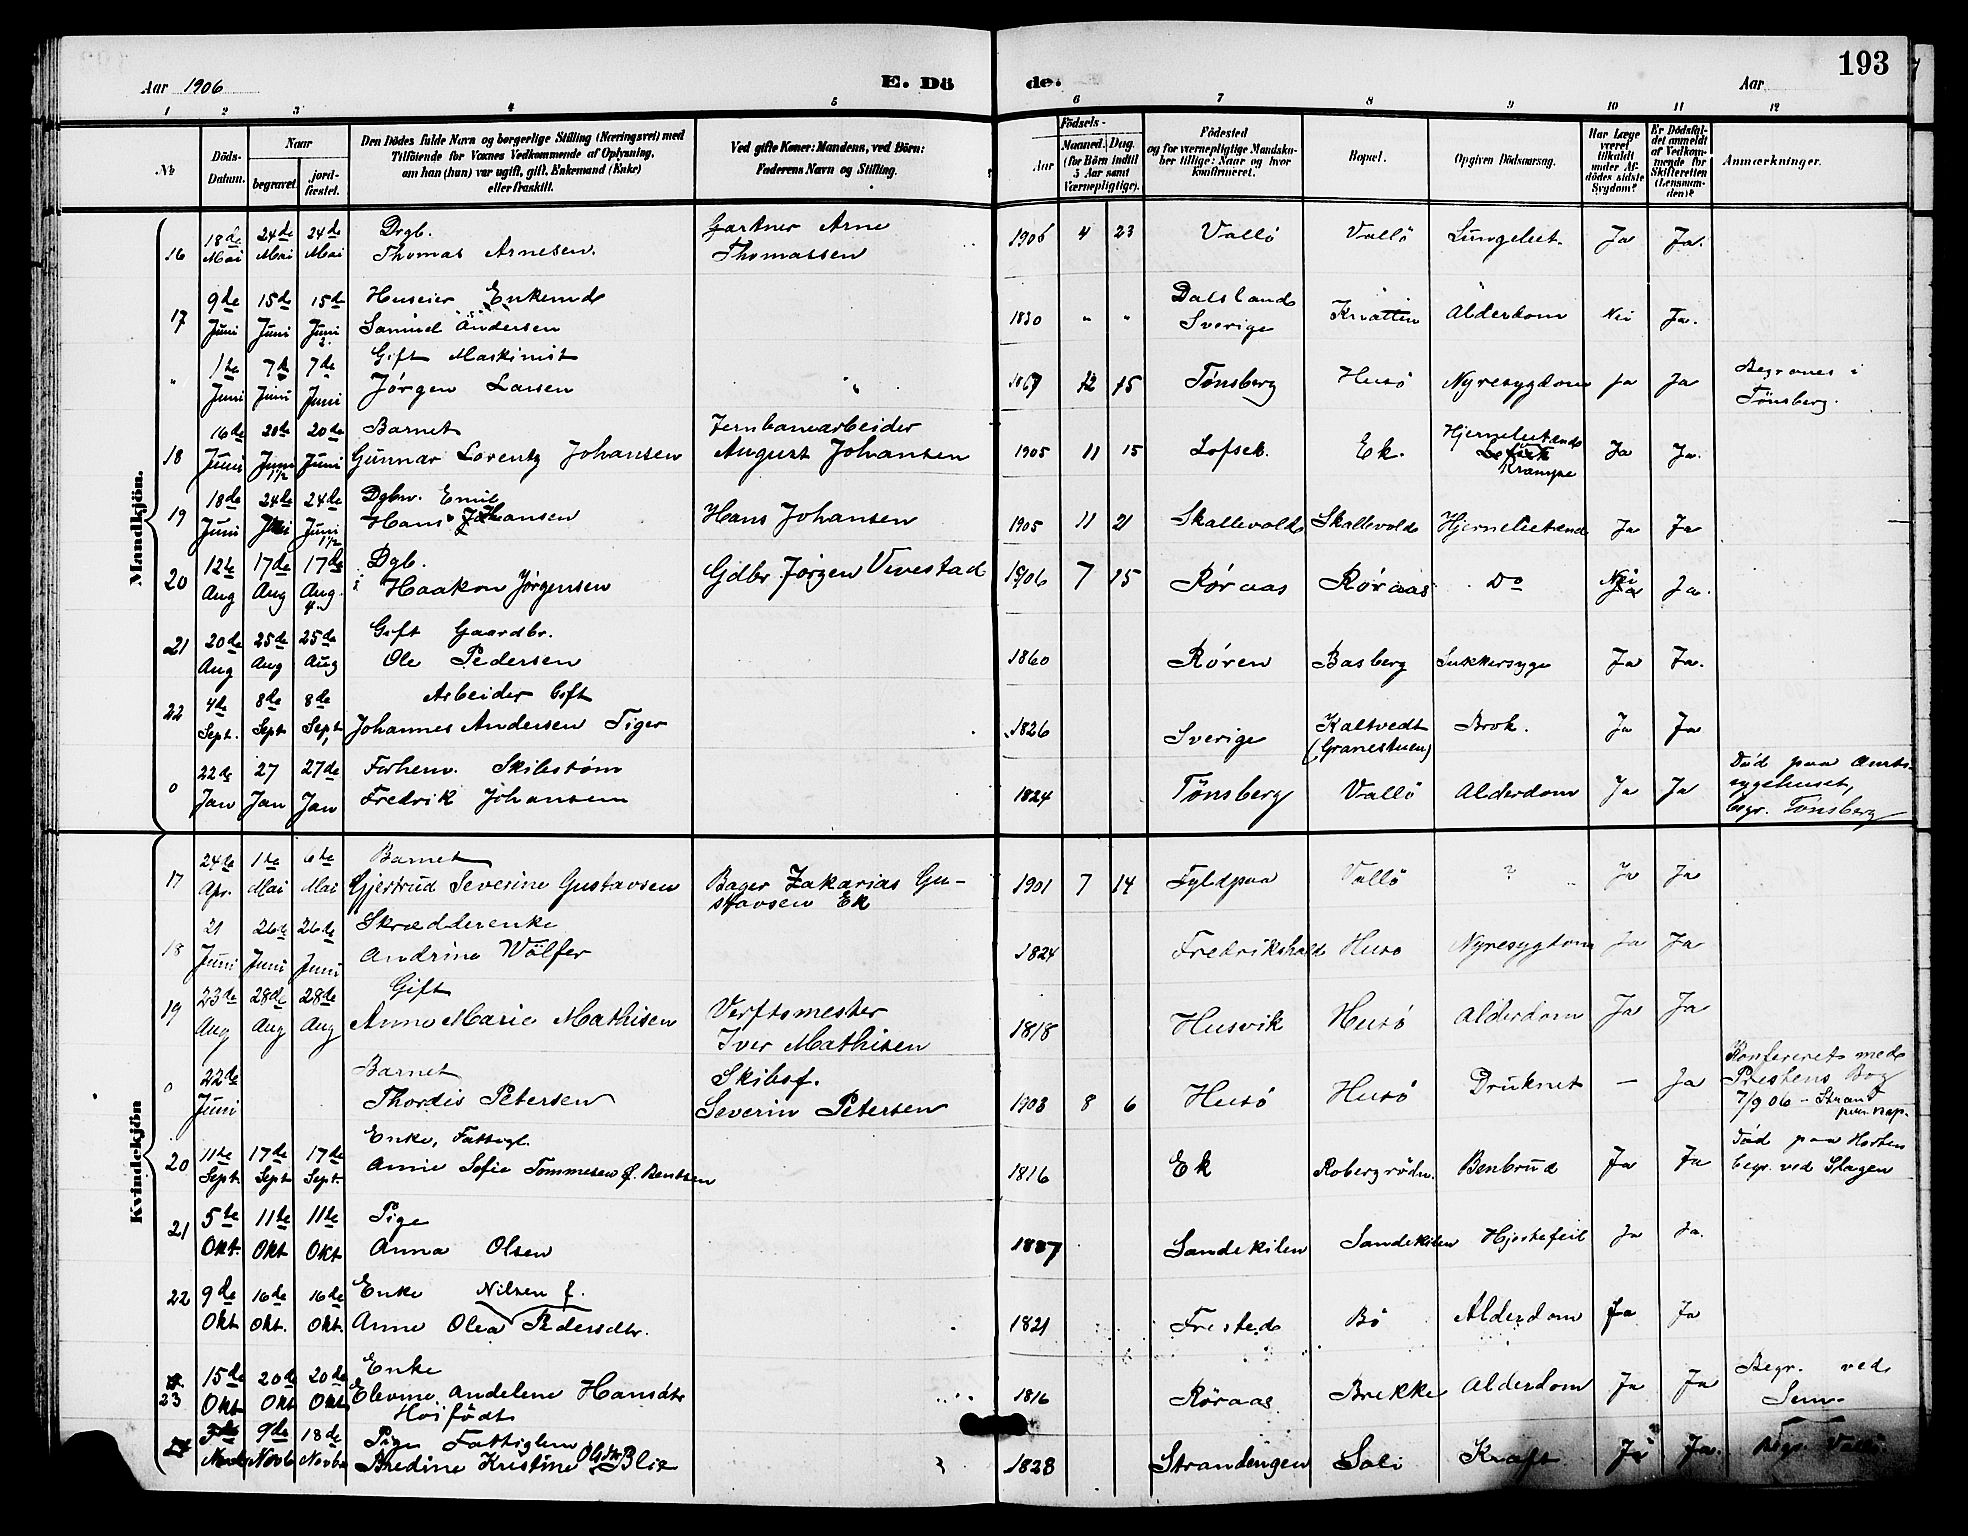 193
Aar 1906
E. Dö
de.
Aar
1 2 3 4 5 6 7 8 9 10 11 12
No
Döds-Datum.
Naar
begravet.
jordfæstet.
Den Dödes fulde Navn og borgerlige Stilling (Næringsvei) med
Tilföiende for Voxnes Vedkommende af Oplysning,
om han (hun) var ugift, gift, Enkemand (Enke)
eller fraskilt.
Ved gifte Koner: Mandens, ved Börn:
Faderens Navn og Stilling.
Födsels-
Aar
Maaned. Dag.
(for Börn indtil
5 Aar samt
Værnepligtige).
Födested
og for værnepligtige Mandska-
ber tillige: Naar og hvor
konfirmeret.
Bopæl.
Opgiven Dödsaarsag.
Har Læge
været
tilkaldt
under Af-
dödes sidste
Sygdom?
Er Dödsfal-
det anmeldt
af Vedkom-
mende for
Skifteretten
(Lensman-
den)?
Anmærkninger.
Mandkjön.
16 18de Mai 24de Mai 24de Mai Drgb. Thomas Arnesen. Gartner Arne Thomassen 1906 4 23 Vallö Vallö Lungebet. Ja Ja.
17 9de Juni 15de Juni 15de Juni Huseier Enkemd Samuel Andersen 1830 " " Dalsland Sverige Knatten Alderdom Nei Ja.
" 1te Juni 7de Juni 7de Juni Gift Maskinist Jørgen Larsen " 1867 12 15 Tønsberg Husö Nyresygdom Ja Ja Begraves i Tønsberg.
18 16de Juni 20de Juni 20de Juni Barnet Gunnar Lorentz Johansen Jernbanearbeider August Johansen 1905 11 15 Lofsek. Ek. Hjernebetænd Krampe Ja Ja.
19 18de Juni 24de Juni 24de Juni Dgbn. Emil Hans Johansen Hans Johansen 1905 11 21 Skallevold Skallevold Hjernebetænd Ja Ja
20 12te Aug 17de Aug 17de Aug. Dgb. Haakon Jørgensen Gdbr Jørgen Vivestad 1906 7 15 Røraas Røraas Do Nei Ja.
21 20de Aug 25de Aug 25de Aug Gift Gaardbr. Ole Pedersen 1860 Røren Basberg Sukkersyge Ja Ja.
22 4de Sept. 8de Sept 8de Sept. Arbeider Gift Johannes Andersen Tiger 1826 Sverige Kaltvedt (Granestuen) Brok. Ja Ja
o 22de Jan 27 Jan 27de Jan Forhenv. Skibstøm Fredrik Johansen 1824 Tønsberg Vallö Alderdom Ja Ja Död paa Amtssygehuset, begr. Tønsberg
Kvindekjön
17 24de Apr. 1te Mai 6te Mai Barnet Gjertrud Severine Gustavsen Bager Zakarias Gu-
stavsen Ek 1901 7 14 Fyldpaa Vallö ? Ja Ja
18 21 Juni 26de Juni 26de Juni Skrædderenke Andrine Wölfer 1824 Fredrikshald Husö Nyresygdom Ja Ja
19 23de Aug 28de Aug 28de Aug Gift Anne Marie Mathisen Verftsmester Iver Mathisen 1818 Husvik Husö Alderdom Ja Ja
o 22de Juni Barnet Thordis Petersen Skibsf. Severin Petersen 1903 8 6 Husö Husö Druknet — Ja Konfereret med Prestens Bog 7/9 06 - Strand
20 11te Sept. 17de Sept 17de Sept. Enke, Fattigl. Anne Sofie Tommesen f. Bentsen 1816 Ek Robergrødn. Benbrud Ja Ja Död paa Horten begr. ved Slagen
21 5te Okt. 11te Okt 11te Okt Pige Anna Olsen 1887 Sandekilen Sandekilen Hjertefeil Ja Ja.
22 9de Okt 16de Okt. 16de Okt. Enke Nilsen f. Anne Olea Pedersdtr. 1821 Frested Bö Alderdom Ja Ja
23 15de Okt 20de Okt 20de Okt Enke Elevine Andelene Hansdtr Höifödt 1816 Røraas Brekke Alderdom Ja Ja Begr. ved Sem.
24 9de Novb 18de Novbr Pige Fattiglem Bredine Kristine Olsdtr Blix 1828 Strandengen Soli Kræft Ja Ja. Begr. Vallö